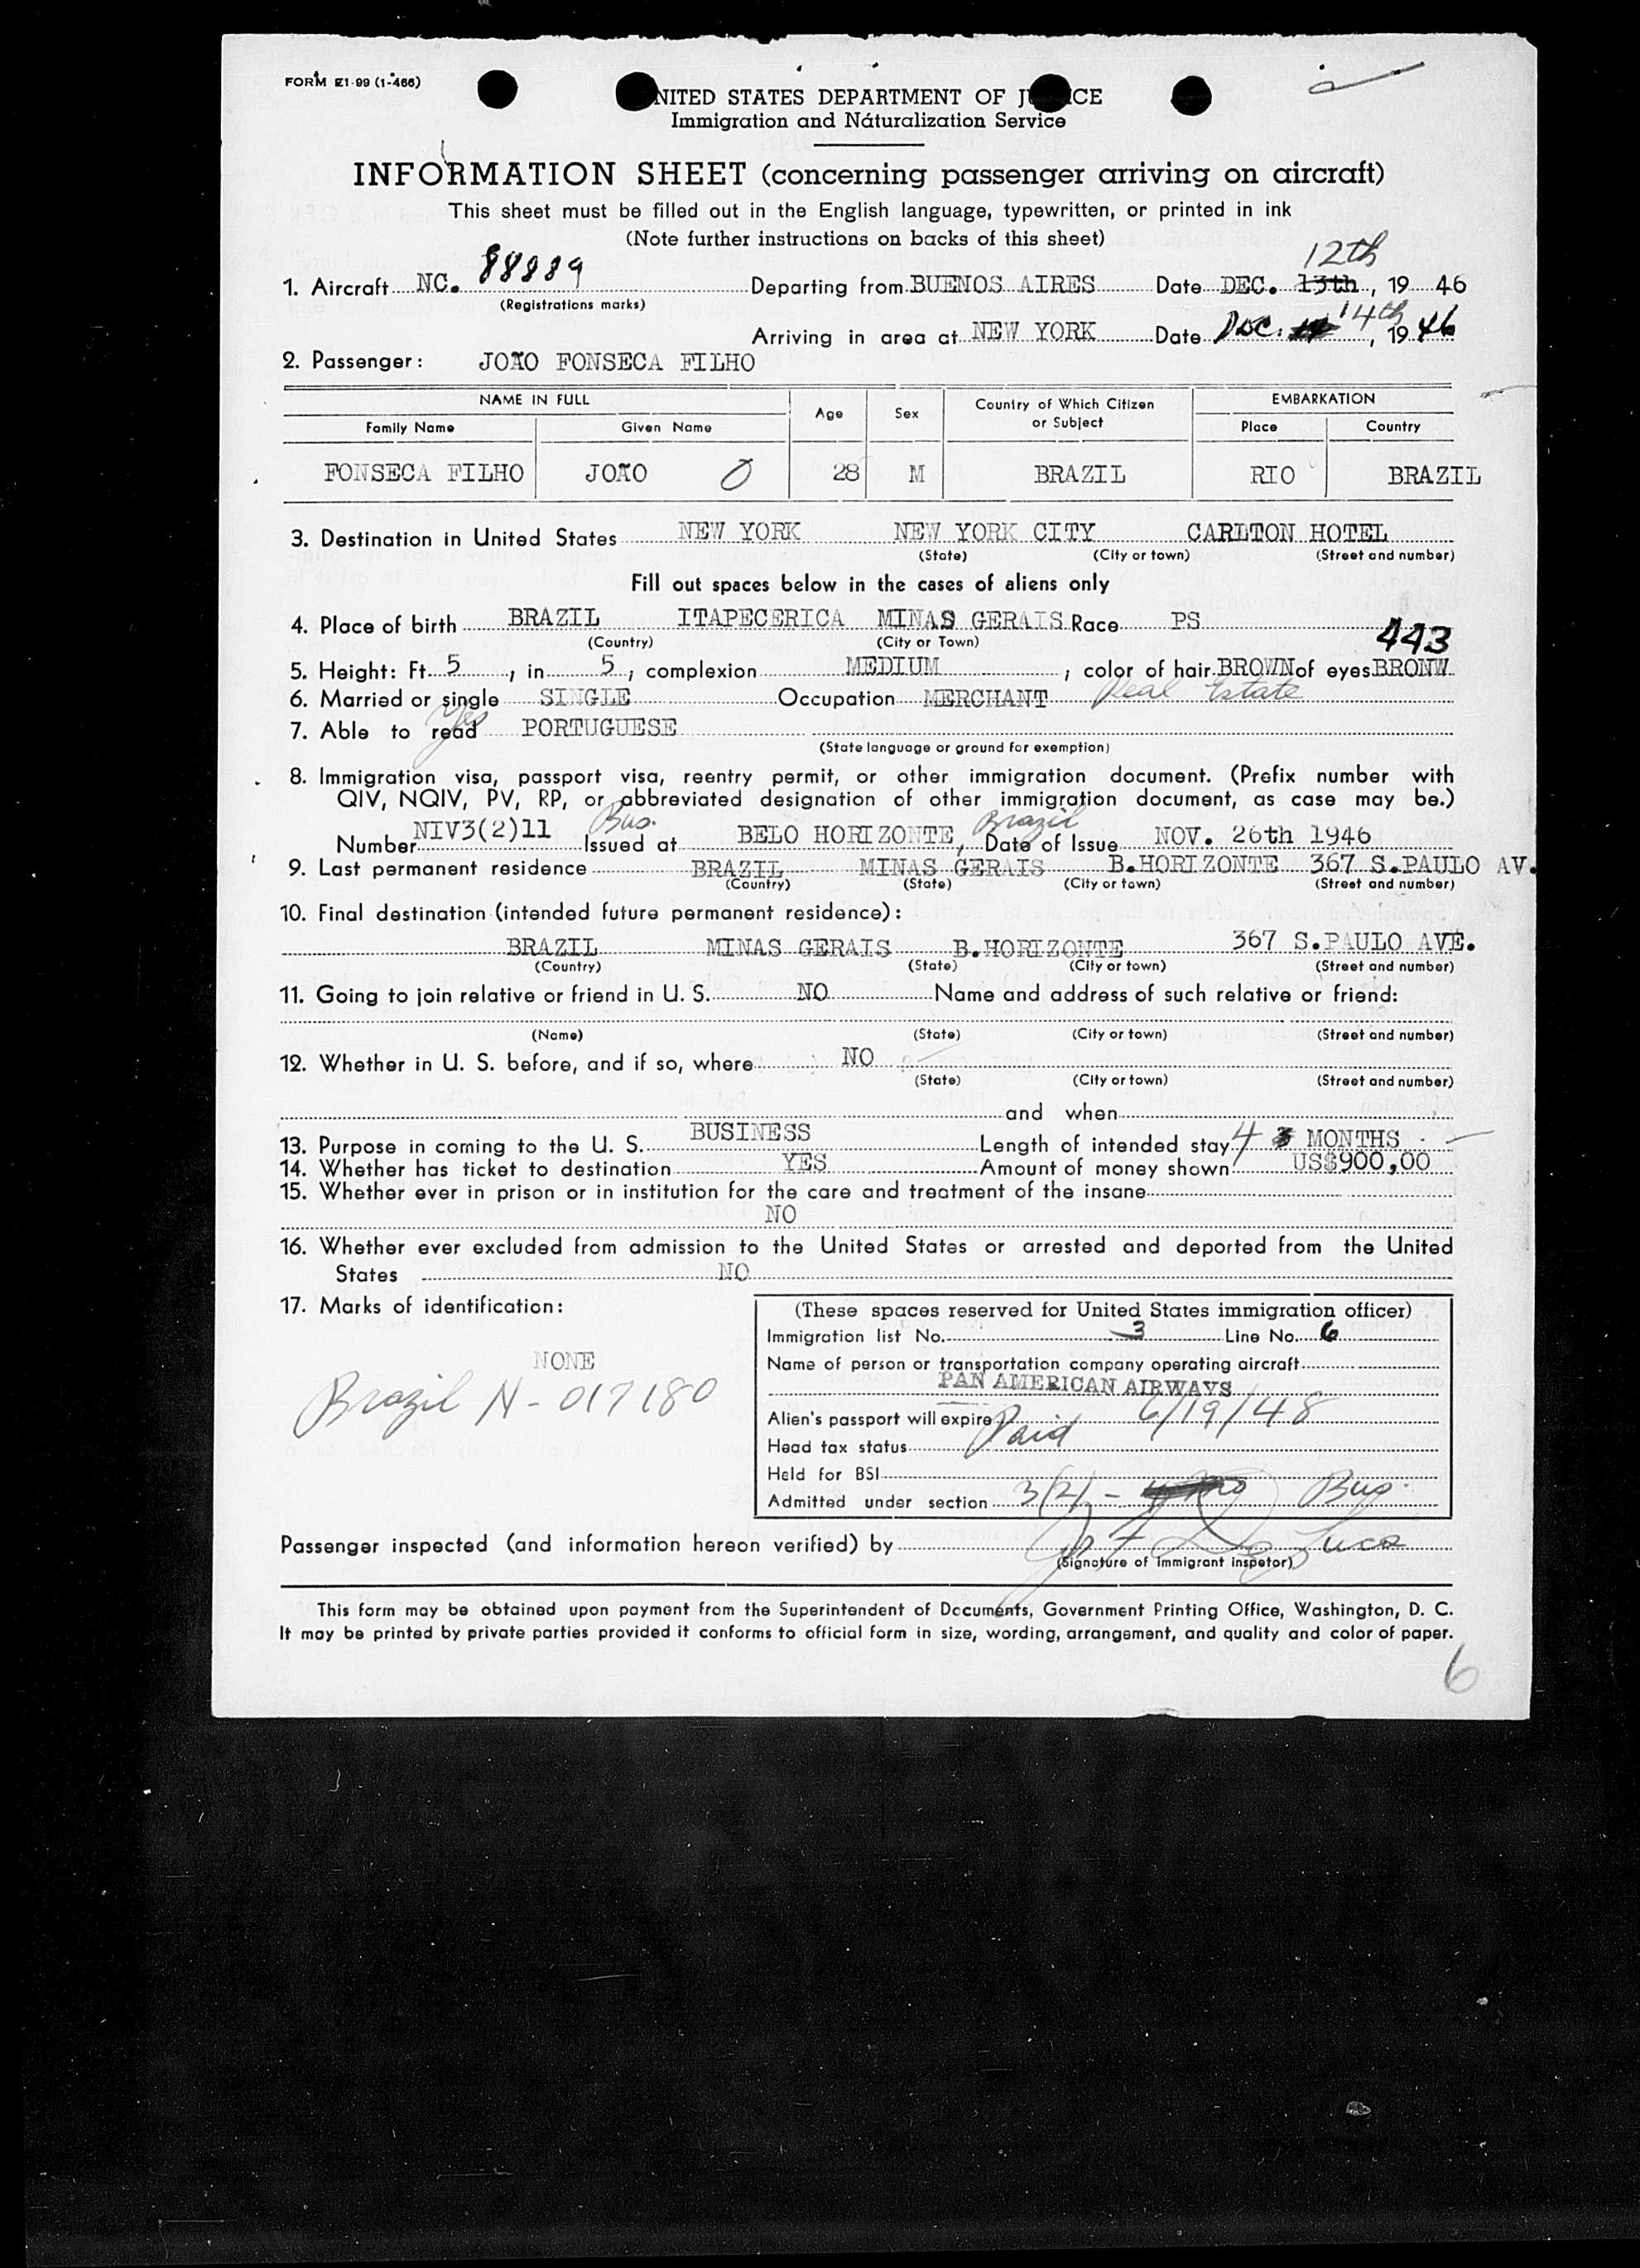 FORM I-99 (1-466)
UNITED STATES DEPARTMENT OF JUSTICE
Immigration and Naturalization Service
INFORMATION SHEET (concerning passenger arriving on aircraft)
This sheet must be filled out in the English language, typewritten, or printed in ink
(Note further instructions on backs of this sheet)
12th
1. Aircraft NC. 88889 Departing from BUENOS AIRES Date DEC. 13th, 19 46
(Registrations marks)
Arriving in area at NEW YORK Date Dec. 14th, 19 46
2. Passenger: JOÃO FONSECA FILHO
NAME IN FULL Age Sex Country of Which Citizen or Subject EMBARKATION
Family Name Given Name Place Country
FONSECA FILHO JOÃO 28 M BRAZIL RIO BRAZIL
3. Destination in United States NEW YORK NEW YORK CITY CARLTON HOTEL
(State) (City or town) (Street and number)
Fill out spaces below in the cases of aliens only
4. Place of birth BRAZIL ITAPECERICA MINAS GERAIS Race PS
(Country) (City or Town) 443
5. Height: Ft. 5, in 5, complexion MEDIUM, color of hair BROWN of eyes BRONW
6. Married or single SINGLE Occupation MERCHANT Real Estate
7. Able to read Yes PORTUGUESE
(State language or ground for exemption)
8. Immigration visa, passport visa, reentry permit, or other immigration document. (Prefix number with
QIV, NQIV, PV, RP, or abbreviated designation of other immigration document, as case may be.)
Bus. Brazil
Number NIV3(2)11 Issued at BELO HORIZONTE, Date of Issue NOV. 26th 1946
9. Last permanent residence BRAZIL MINAS GERAIS B.HORIZONTE 367 S.PAULO AV.
(Country) (State) (City or town) (Street and number)
10. Final destination (intended future permanent residence):
BRAZIL MINAS GERAIS B.HORIZONTE 367 S.PAULO AVE.
(Country) (State) (City or town) (Street and number)
11. Going to join relative or friend in U. S. NO Name and address of such relative or friend:
(Name) (State) (City or town) (Street and number)
12. Whether in U. S. before, and if so, where NO
(State) (City or town) (Street and number)
and when
13. Purpose in coming to the U. S. BUSINESS Length of intended stay 4 3 MONTHS
14. Whether has ticket to destination YES Amount of money shown US$900,00
15. Whether ever in prison or in institution for the care and treatment of the insane
NO
16. Whether ever excluded from admission to the United States or arrested and deported from the United
States NO
17. Marks of identification:
NONE
Brazil N-017180
(These spaces reserved for United States immigration officer)
Immigration list No. 3 Line No. 6
Name of person or transportation company operating aircraft
PAN AMERICAN AIRWAYS
Alien's passport will expire 6/19/48
Head tax status Paid
Held for BSI
Admitted under section 3(2) - Bus.
Passenger inspected (and information hereon verified) by
(Signature of immigrant inspetor)
This form may be obtained upon payment from the Superintendent of Documents, Government Printing Office, Washington, D. C.
It may be printed by private parties provided it conforms to official form in size, wording, arrangement, and quality and color of paper.
6